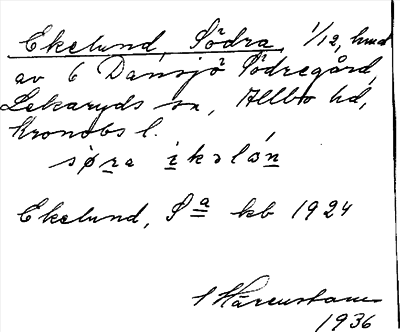 Ekelund, Södra, 1/12, hmd
av 6 Dansjö Södregård,
Lekaryds sn, Allbo hd,
Kronobs l.
søra ikəlón
Ekelund, Sa kb 1924
1936